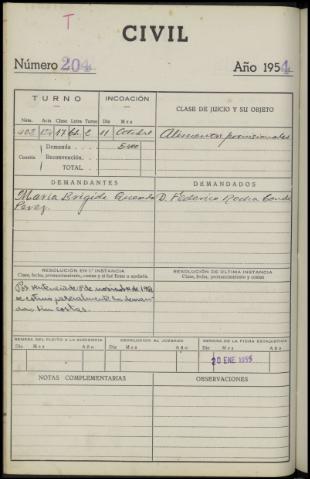 T
CIVIL
Número 204 Año 1954
TURNO INCOACIÓN CLASE DE JUICIO Y SU OBJETO
Núm. Acta Clase Letra Turno Día Mes
11 Octubre Alimentos provisionales
Demanda 5000
Cuantía Reconvención
TOTAL
DEMANDANTES DEMANDADOS
María Brígida Quevedo D. Federico Rocha Conde
Perez
RESOLUCIÓN EN 1.ª INSTANCIA RESOLUCIÓN DE ÚLTIMA INSTANCIA
Clase, fecha, pronunciamiento, costas y si fué firme o apelada Clase, fecha, pronunciamiento y costas
Por sentencia de 8 de noviembre de 1954
se estimó parcialmente la deman-
da sin costas.
REMESA DEL PLEITO A LA AUDIENCIA DEVOLUCIÓN AL JUZGADO REMESA DE LA FICHA ESTADÍSTICA
Día Mes Año Día Mes Año Día Mes Año
20 ENE. 1955
NOTAS COMPLEMENTARIAS OBSERVACIONES